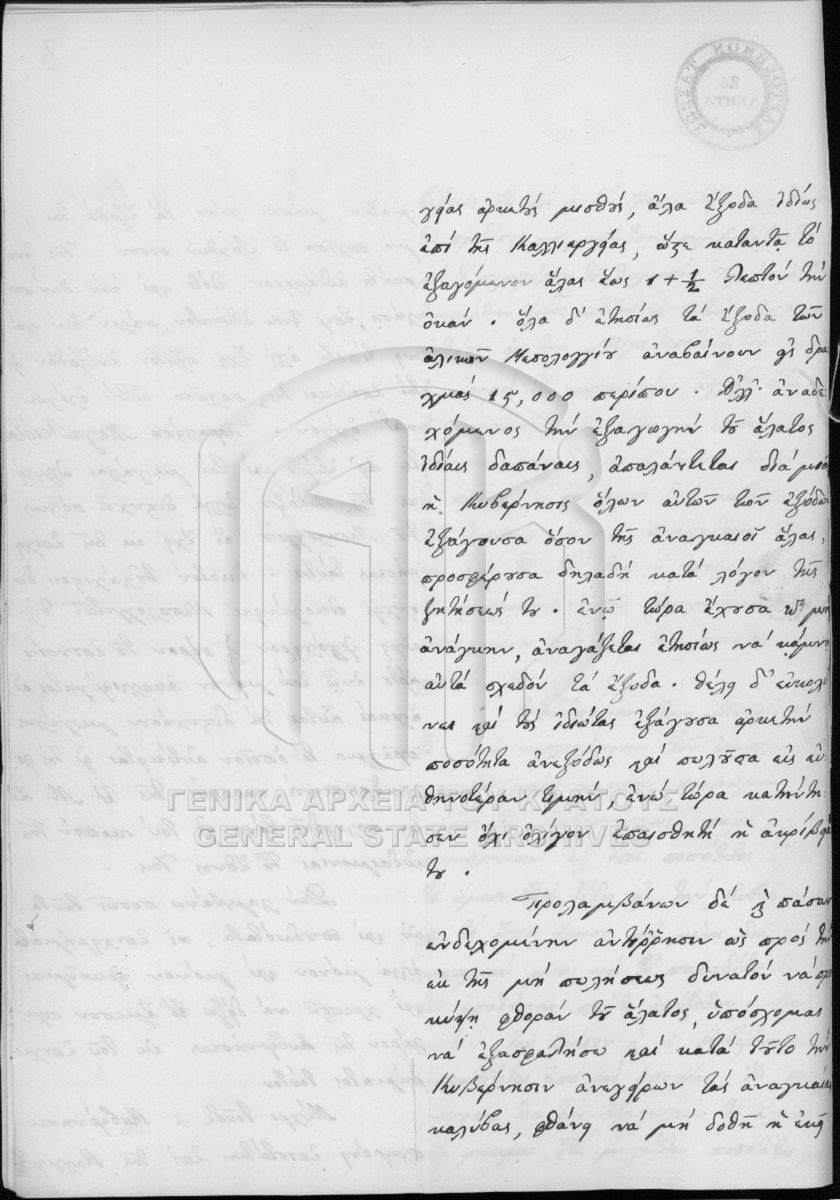 γίας ἀρκετῆς μισθούς, ἄλλα ἔξοδα ἰδίως
ἐπί τῆς Καλλιεργείας, ὥςε καταντᾷ τό
ἐξαγόμενον ἅλας ἕως 1 + 1/2 Λεπτόν τήν
ὀκάν. ὅλα δ' ἐτησίως τά ἔξοδα τῶν
ἁλικῶν Μεσολογγίου ἀναβαίνουν εἰς δρα
χμάς 15,000 περίπου. Ἀλλ' ἀναδε
χόμενος τήν ἐξαγωγήν τοῦ ἅλατος
ἰδίαις δαπάναις, ἀπαλάττεται διά μιᾶς
ἡ Κυβέρνησις ὅλων αὐτῶν τῶν ἐξόδων
ἐξάγουσα ὅσον τῆς ἀναγκαιοῖ ἅλας,
προσφέρουσα δηλαδή κατά λόγον τῆς
ζητήσεώς του. ἐνῷ τώρα ἔχουσα μή
ἀνάγκην, ἀναγκάζεται ἐτησίως νά κάμνῃ
αὐτά σχεδόν τά ἔξοδα. θέλει δ' εὐκολύ
νει καί τούς ἰδιώτας ἐξάγουσα ἀρκετήν
ποσότητα ἀνεξόδως καί πωλοῦσα εἰς εὐ
θηνοτέραν τιμήν, ἐνῷ τώρα κατήντη
σεν ὄχι ὀλίγον ἐπαισθητή ἡ ἀκρίβεια
του.
Προλαμβάνων δέ καί πᾶσαν
ἐνδεχομένην ἀντίρρησιν ὡς πρός τήν
ἐκ τῆς μή πωλήσεως δυνατόν νά προ
κύψῃ φθοράν τοῦ ἅλατος, ὑπόσχομαι
νά ἐξασφαλήσω καί κατά τοῦτο τήν
Κυβέρνησιν ἀνεγείρων τάς ἀναγκαίας
καλύβας, φθάνει νά μή δοθῇ ἡ
ΓΕΝΙΚΑ ΑΡΧΕΙΑ ΤΟΥ ΚΡΑΤΟΥΣ
GENERAL STATE ARCHIVES